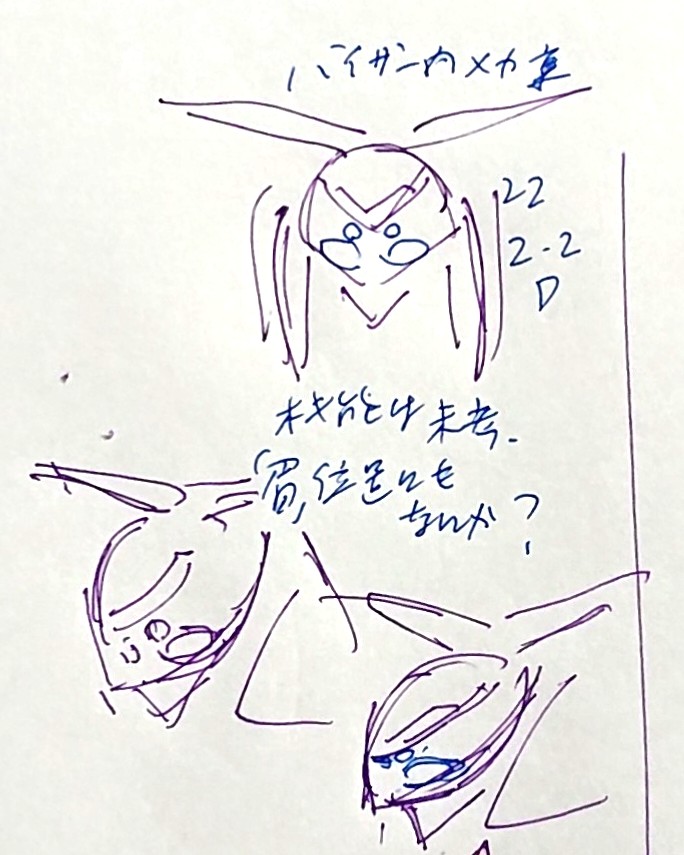 バイザー内メカ案
22
2-2
D
機能は未考.
位置にも
ないか?